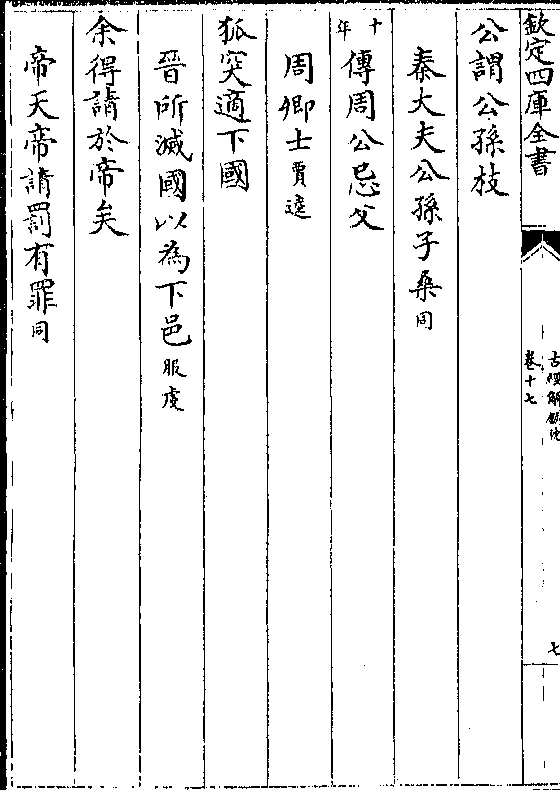 欽定四庫全書
古經解鉤沈
卷十七
七
公謂公孫枝
秦大夫公孫子桑同
十年傳周公忌父
周卿士賈逵
狐突適下國
晉所滅國以為下邑服虔
余得請於帝矣
帝天帝請罰有罪同